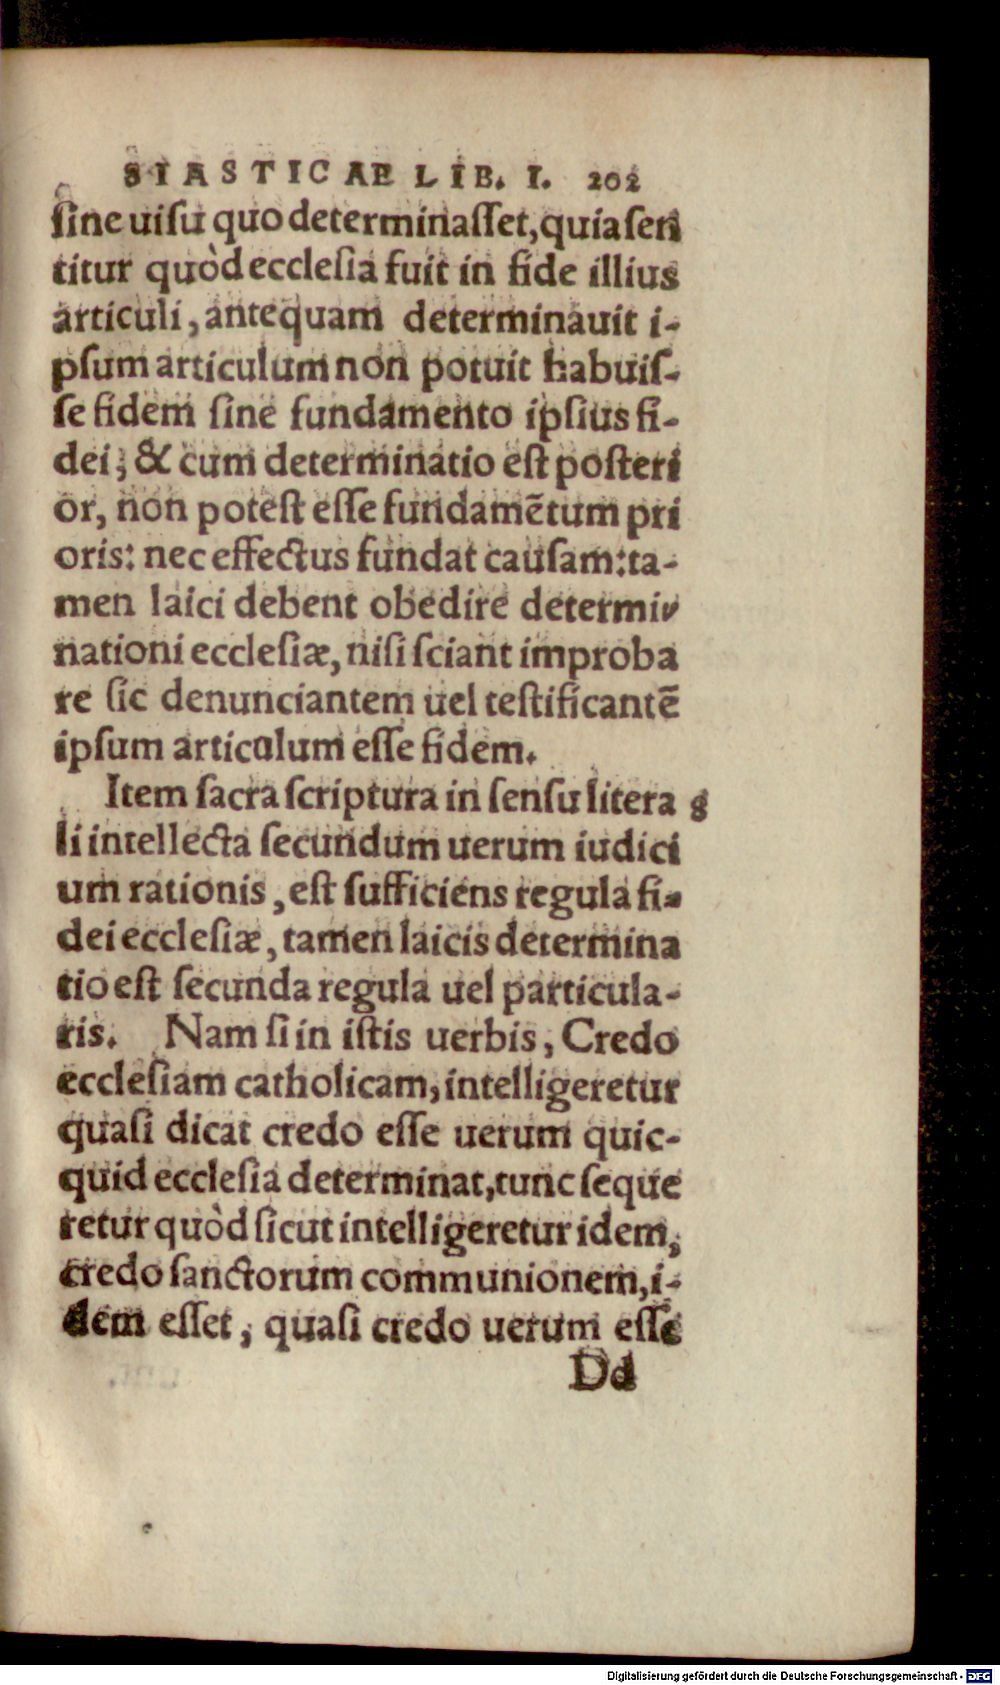 SIASTICAE LIB. I. 202
ſine uiſu quo determinaſſet, quia ſen
titur quòd eccleſia fuit in fide illius
articuli, antequam determinauit i-
pſum articulum non potuit habuiſ-
ſe fidem ſine fundamento ipſius fi-
dei; & cum determinatio eſt poſteri
or, non poteſt eſſe fundamētum pri
oris: nec effectus fundat cauſam: ta-
men laici debent obedire determi-
nationi eccleſiæ, niſi ſciant improba
re ſic denunciantem uel teſtificantē
ipſum articulum eſſe fidem.
Item ſacra ſcriptura in ſenſu litera g
li intellecta ſecundum uerum iudici
um rationis, eſt ſufficiens regula fi-
dei eccleſiæ, tamen laicis determina
tio eſt ſecunda regula uel particula-
ris. Nam ſi in iſtis uerbis, Credo
eccleſiam catholicam, intelligeretur
quaſi dicat credo eſſe uerum quic-
quid eccleſia determinat, tunc ſeque
retur quòd ſicut intelligeretur idem,
credo ſanctorum communionem, i-
dem eſſet, quaſi credo uerum eſſe
Dd
Digitalisierung gefördert durch die Deutsche Forschungsgemeinschaft - DFG